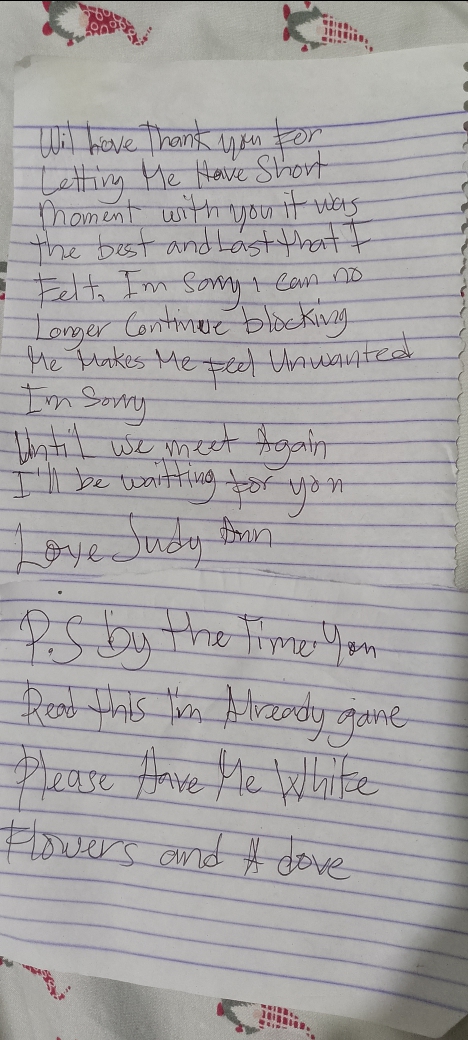 Wil Love Thank you for
Letting Me Have Short
Moment with you it was
the best and Last that I
Felt, I'm Sorry I can no
Longer Continue blocking
Me Makes Me feel Unwanted
I'm Sorry
Until we meet Again
I'll be waitting for you
Love Judy Ann
P.S by the Time You
Read this I'm Already gane
Please Have Me White
Flowers and A dove